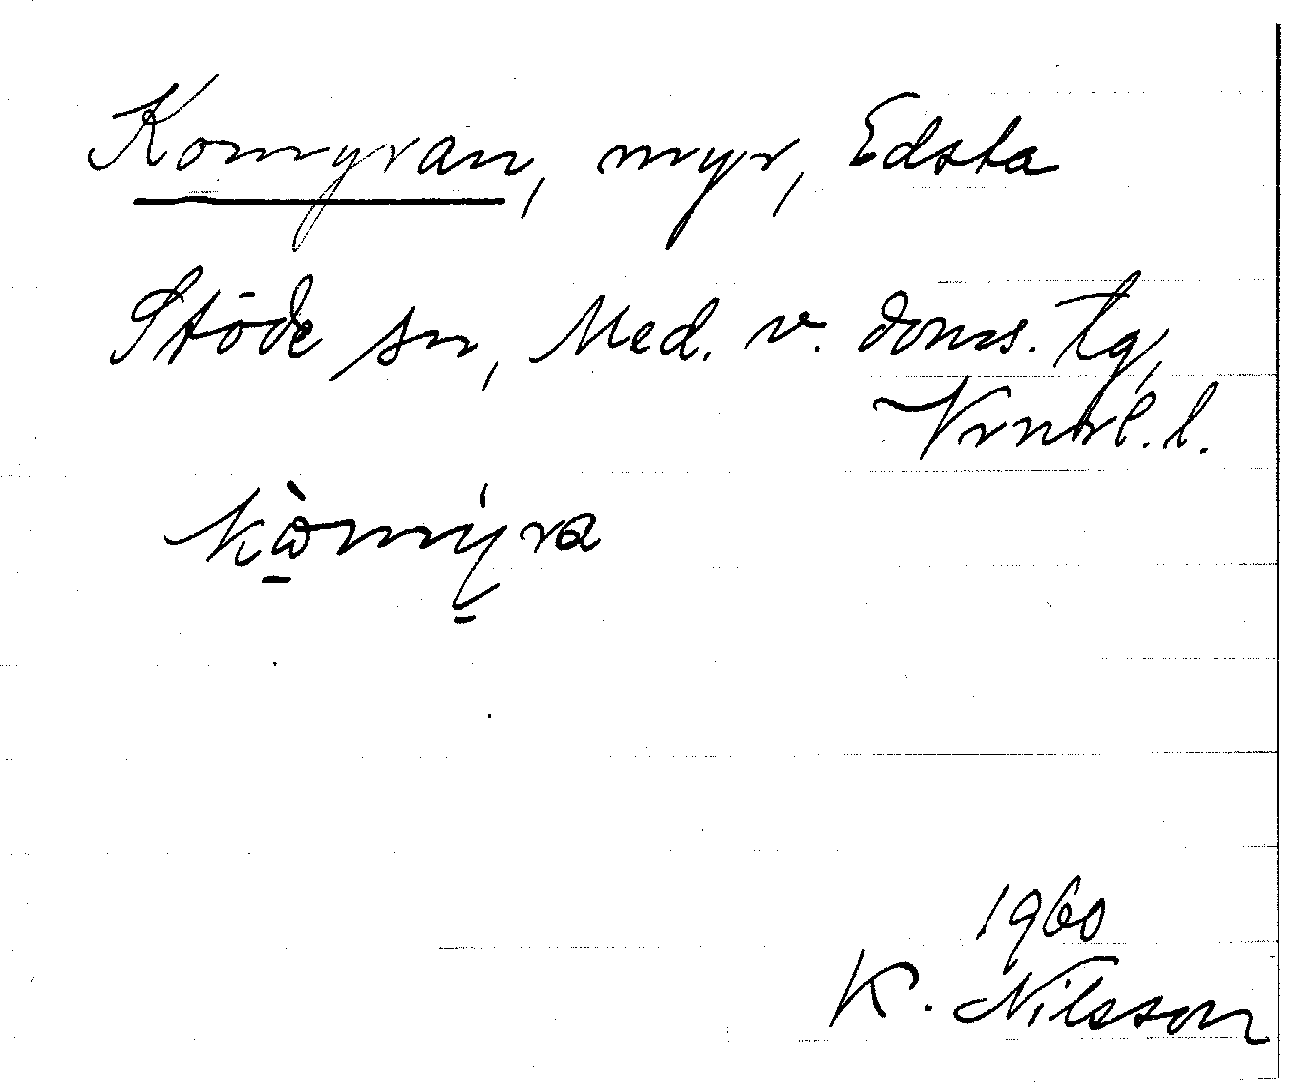 Komyran, myr, Edsta
Stöde sn, Med. v. doms. tg,
Vrntrl. l.
kòmýra
1960
K. Nilsson